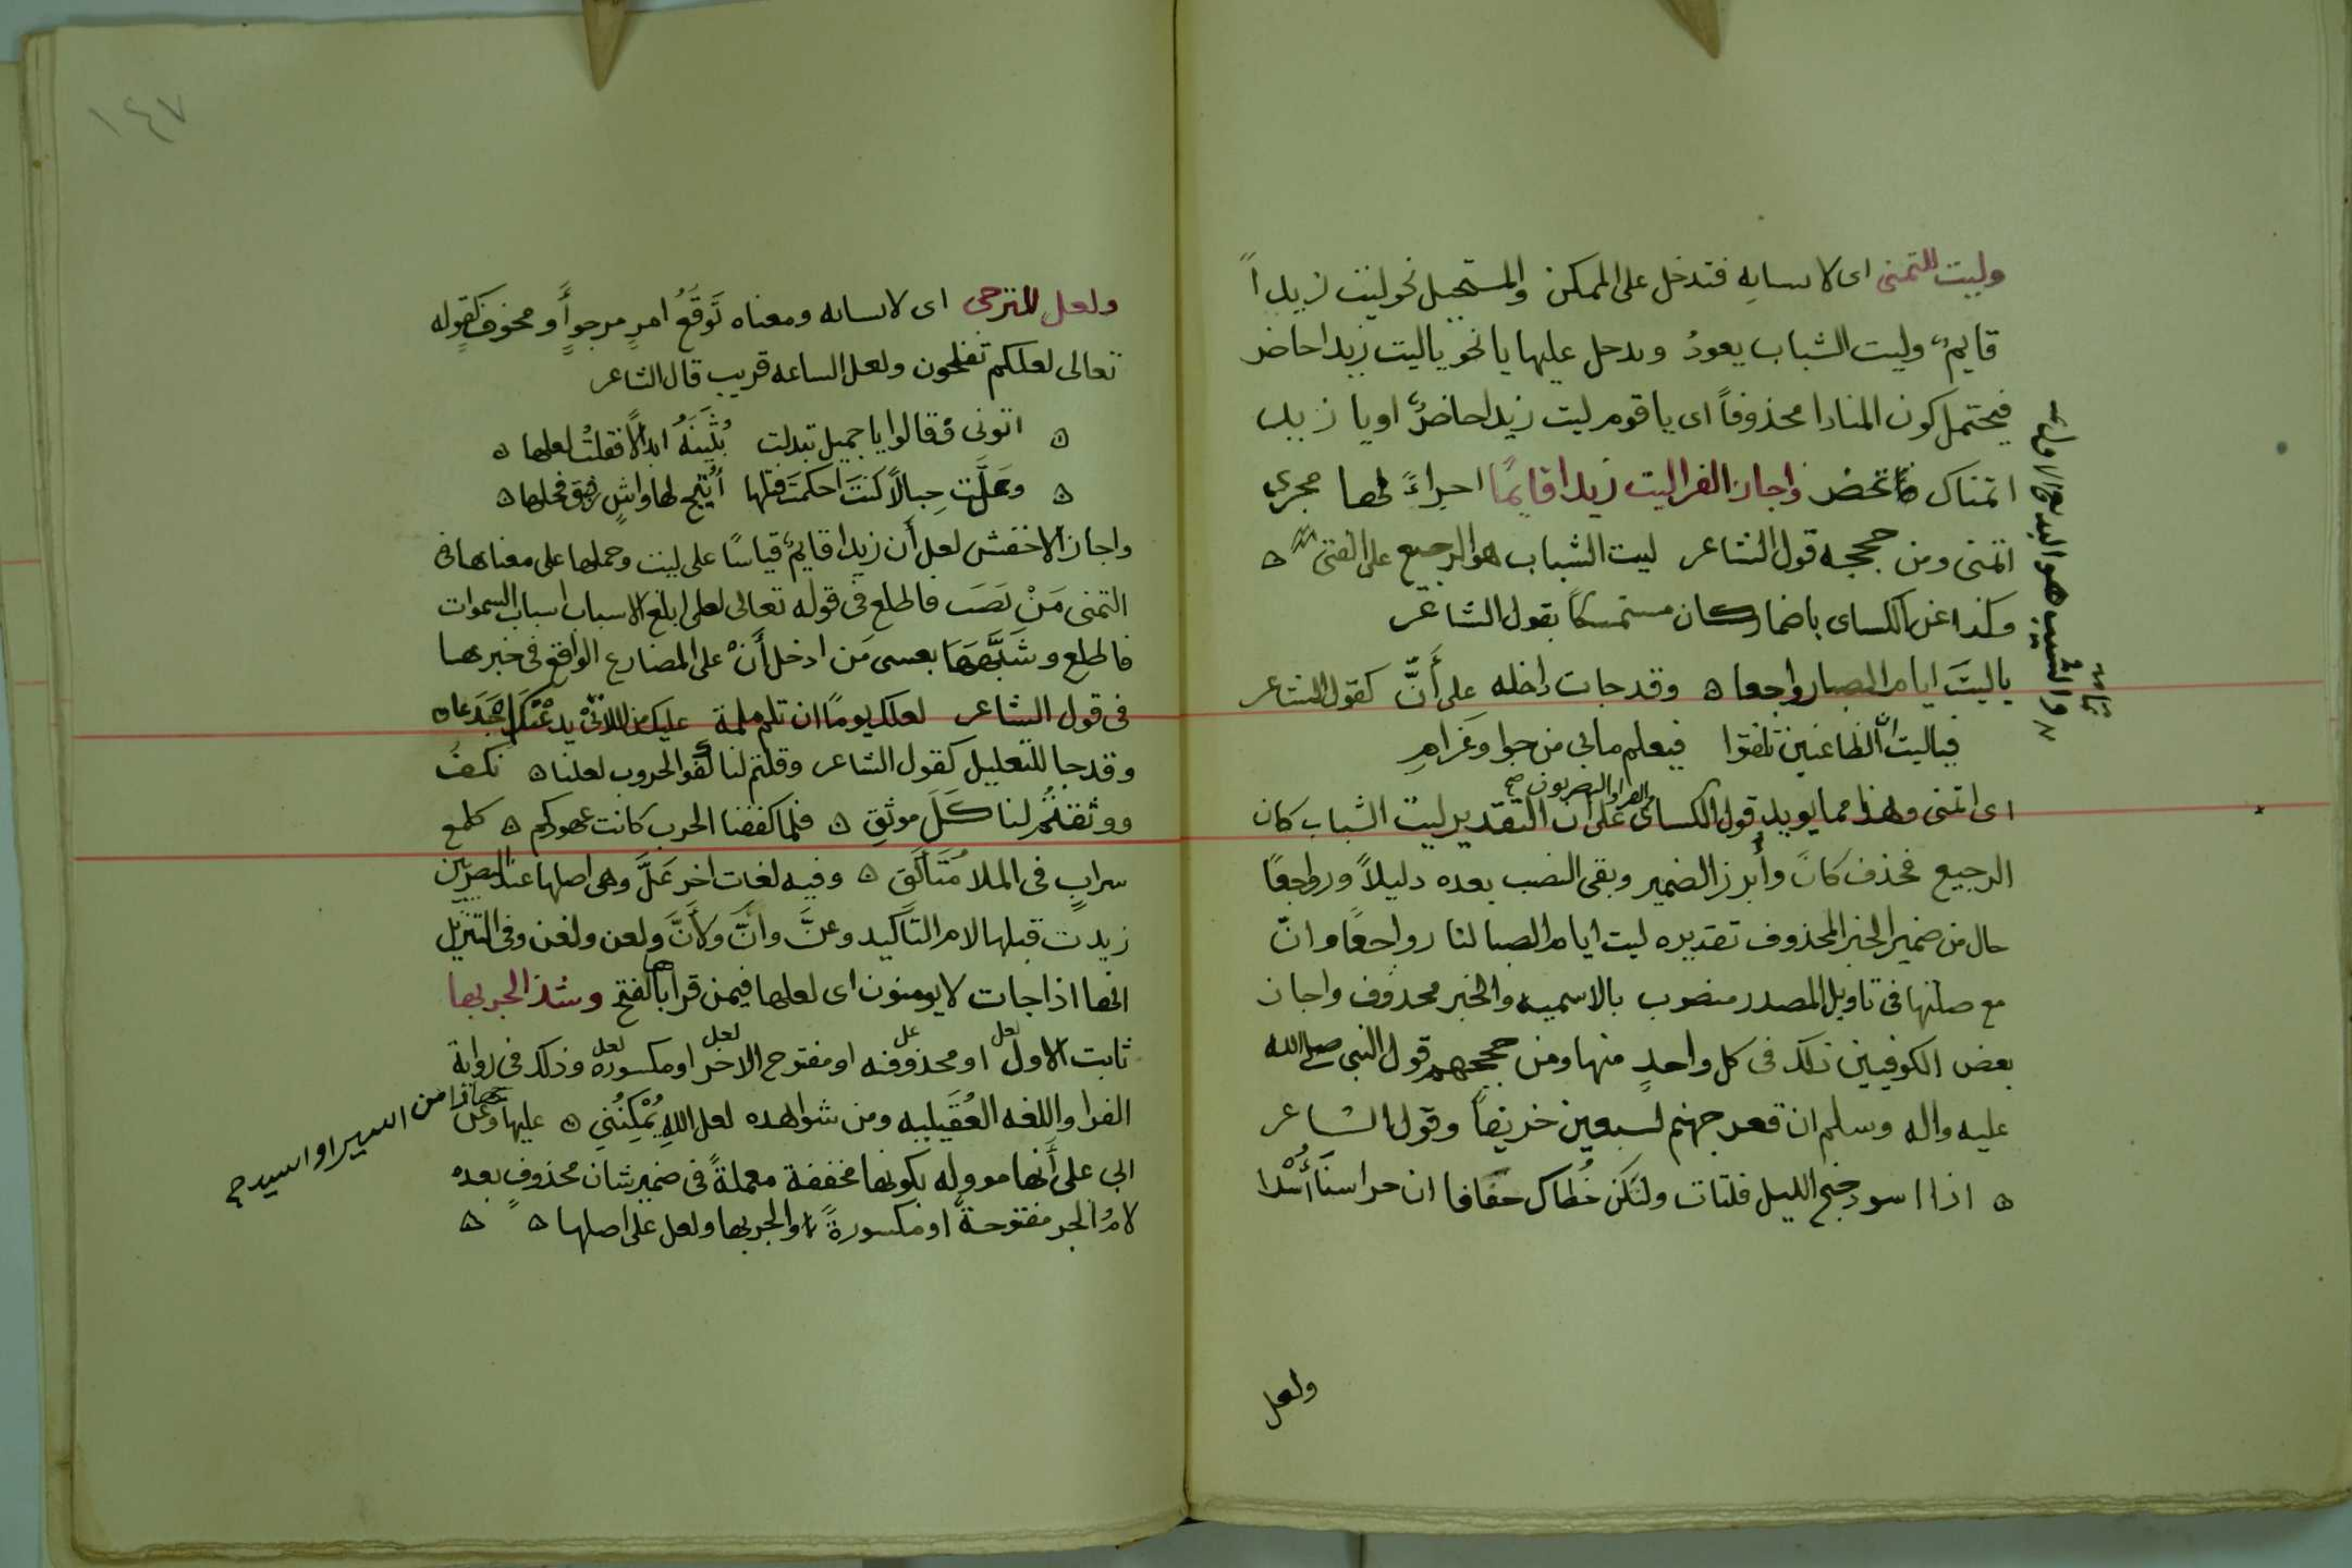 وليت للتمنى اى لانشايه فتدخل على الممكن والمستحيل نحو ليت زيداً
قايمٌ وليت الشباب يعودُ ويدخل عليها يا نحو يا ليت زيدا حاضر
فيحتمل كون المنادا محذوفاً اى يا قوم ليت زيدا حاضرٌ او يا زيد
اتمناك واجاز الفرا ليت زيدا قايمًا اجراءً لها مجرى
اتمنى ومن حججه قول الشاعر ليت الشباب هو الرجيع على الفتى
وكذا عن الكساى باضمار كان مستمسكاً بقول الشاعر
ياليتَ ايام الصبا رواجعا ۵ وقد جات داخله على أَنَّ كقول الشاعر
فياليت انَّ الظاعنين تلفتوا فيعلم مابى من جوا وغرامِ
اى اتمنى وهذا مما يويد قول الكساى على ان التقدير ليت الشباب كان
الفرا والبصريون صح
الرجيع فحذف كانَ وأُبرز الضمير وبقى النصب بعده دليلاً ورواجعًا
حال من ضمير الخبر المحذوف تقديره ليت ايام الصبا لنا رواجعًا وانّ
مع صلتها فى تاويل المصدر منصوب بالاسميه والخبر محذوف واجاز
بعض الكوفيين ذلك فى كل واحدٍ منها ومن حججهم قول النبى صلى الله
عليه واله وسلم ان قعر جهنم لسبعين خريفاً وقول الشاعر
۵ اذا اسود جنح الليل فلتات ولتكن خُطاك خفافا ان حراسنا أُسْدا
والشيب هو البدى الاول
تمامه
ولعل
١٤٧
ولعل للترجى اى لانشايه ومعناه تَوَقعُ امرٍ مرجوٍأَو مخوفٍ كقوله
تعالى لعلكم تفلحون ولعل الساعه قريب قال الشاعر
۵ اتونى فقالوا يا جميل تبدلت بُثَينَهُ ابدالاً فقلتُ لعلها ۵
۵ وعَلَّت حِبالاً كنتَ احكمتَ فتلها أُتيح لها واشٍ رفيق فحلها ۵
واجاز الاخفش لعل أَن زيدا قايمٌ قياسًا على ليت وحملها على معناها فى
التمنى مَنْ نَصَبَ فاطلع فى قوله تعالى لعلى ابلغ الاسباب اسباب السموات
فاطلع وشَبَّهَهَا بعسى مَن ادخل أَنْ على المضارع الواقع فى خبرها
فى قول الشاعر لعلك يومًا ان تلم ملمة عليك من اللاتى يدعْنكَ اجْدَعا ۵
وقد جا للتعليل كقول الشاعر وقلتم لنا كفوا الحروب لعلنا ۵ نكفُ
ووثقتُمُ لنا كلَ موثقِ ۵ فلما كففنا الحرب كانت عهودكم ۵ كلمع
سرابٍ فى الملا مُتَألقِ ۵ وفيه لغات اخر عَلَّ وهى اصلها عند البصريين
زيدت قبلها لام التاكيد وعنَّ وانَّ ولأَنَّ ولعن ولغن وفى التنزيل
انها اذا جات لا يومنون اى لعلها فيمن قراها بالفتح وشذ الجر بها
ثابت الاول او محذوفه او مفتوح الاخر او مكسوره وذلك فى رواية
لعل عل لعل لعل
الفرا واللغه العُقَيليه ومن شواهده لعل اللهِ يُمْكِنُنِي ۵ عليها وعن
ابى على أَنها مووله بكونها مخففة معملةً فى ضمير شان محذوفٍ بعده
لامُ الجر مفتوحةً او مكسورةً والجر بها ولعل على اصلها ۵ ۵